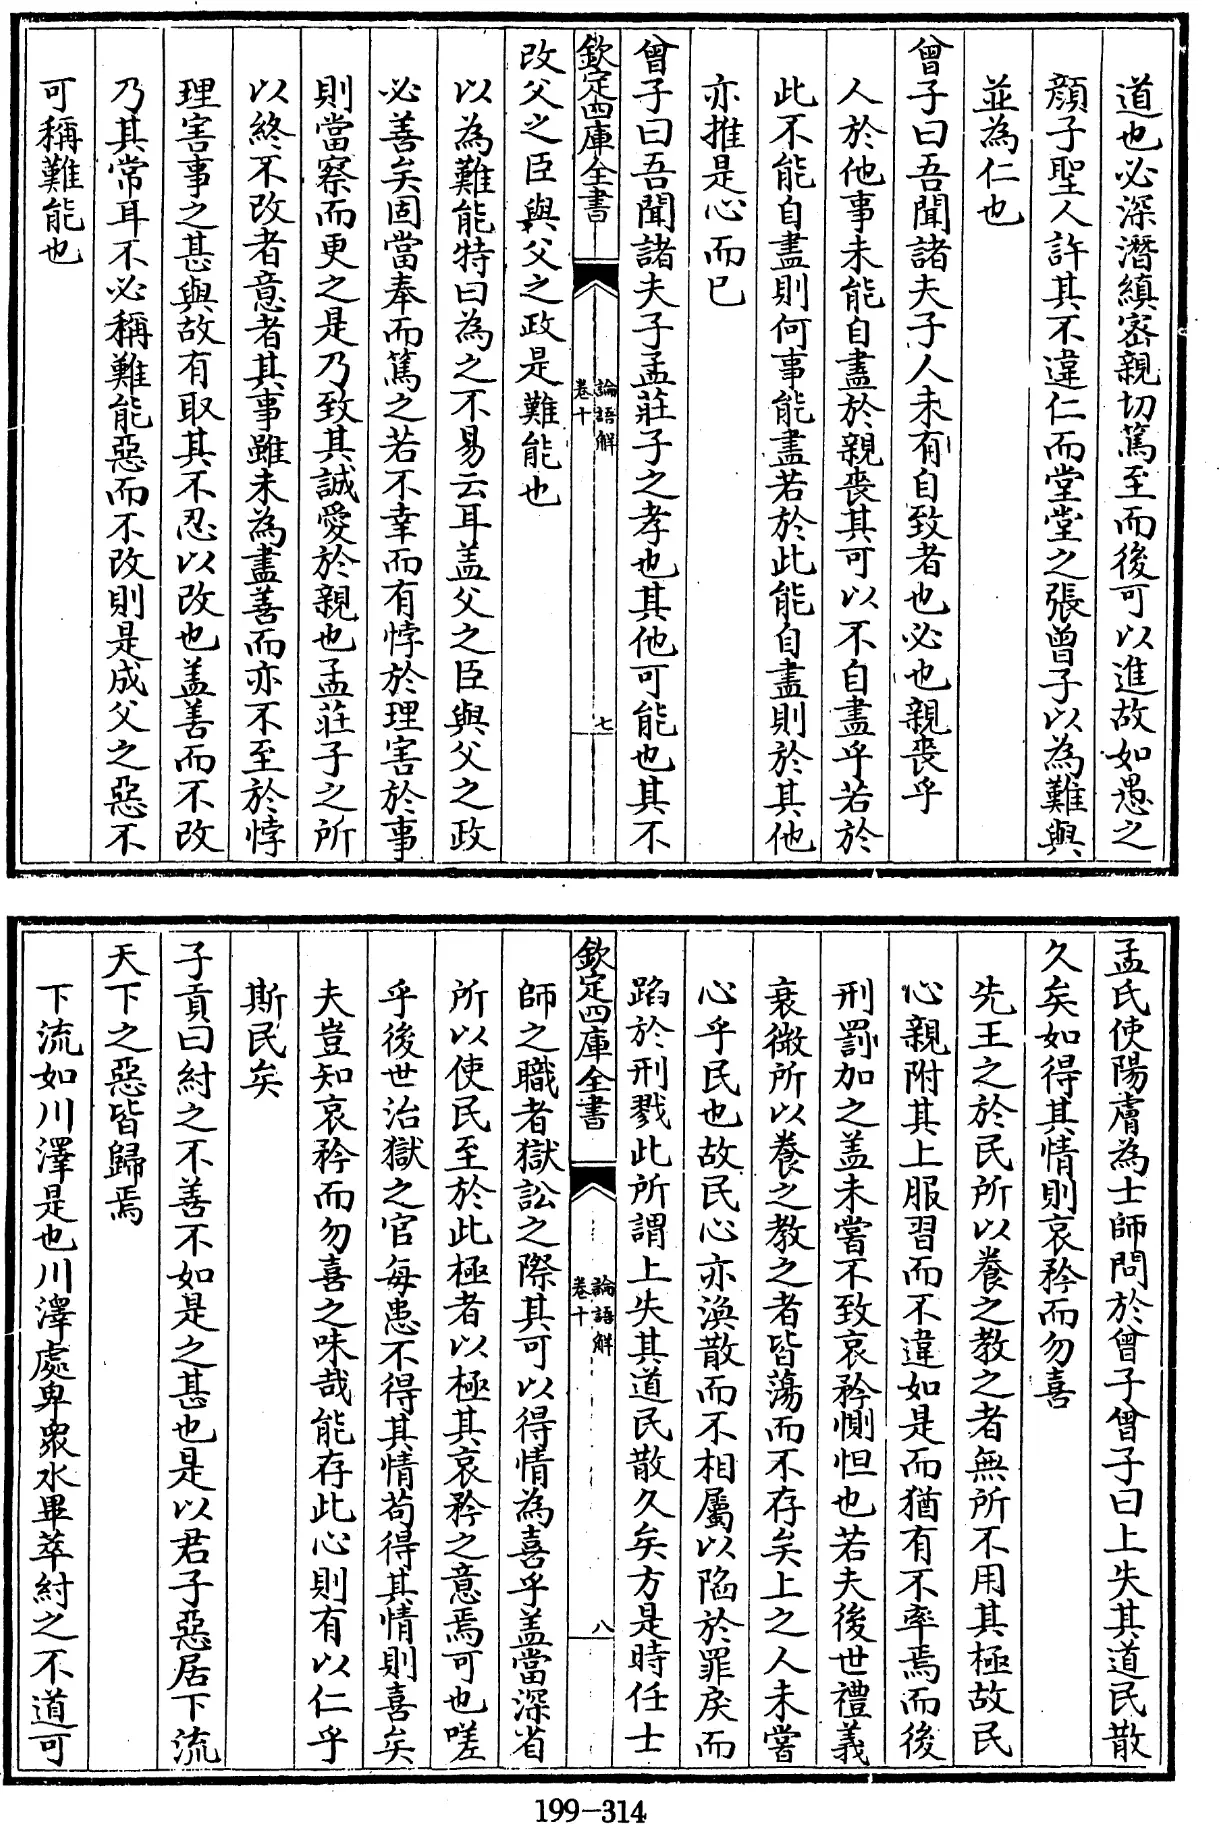 道也必深潛縝密親切篤至而後可以進故如愚之
顏子聖人許其不違仁而堂堂之張曾子以為難與
並為仁也
曾子曰吾聞諸夫子人未有自致者也必也親喪乎
人於他事未能自盡於親喪其可以不自盡乎若於
此不能自盡則何事能盡若於此能自盡則於其他
亦推是心而已
曾子曰吾聞諸夫子孟莊子之孝也其他可能也其不
欽定四庫全書
論語解
卷十
七
改父之臣與父之政是難能也
以為難能特曰為之不易云耳盖父之臣與父之政
必善矣固當奉而篤之若不幸而有悖於理害於事
則當察而更之是乃致其誠愛於親也孟莊子之所
以終不改者意者其事雖未為盡善而亦不至於悖
理害事之甚與故有取其不忍以改也盖善而不改
乃其常耳不必稱難能惡而不改則是成父之惡不
可稱難能也
孟氏使陽膚為士師問於曾子曾子曰上失其道民散
久矣如得其情則哀矜而勿喜
先王之於民所以養之教之者無所不用其極故民
心親附其上服習而不違如是而猶有不率焉而後
刑罰加之盖未嘗不致哀矜惻怛也若夫後世禮義
衰微所以養之教之者皆蕩而不存矣上之人未嘗
心乎民也故民心亦渙散而不相屬以陷於罪戾而
蹈於刑戮此所謂上失其道民散久矣方是時任士
欽定四庫全書
論語解
卷十
八
師之職者獄訟之際其可以得情為喜乎盖當深省
所以使民至於此極者以極其哀矜之意焉可也嗟
乎後世治獄之官每患不得其情苟得其情則喜矣
夫豈知哀矜而勿喜之味哉能存此心則有以仁乎
斯民矣
子貢曰紂之不善不如是之甚也是以君子惡居下流
天下之惡皆歸焉
下流如川澤是也川澤處卑衆水畢萃紂之不道可
199-314